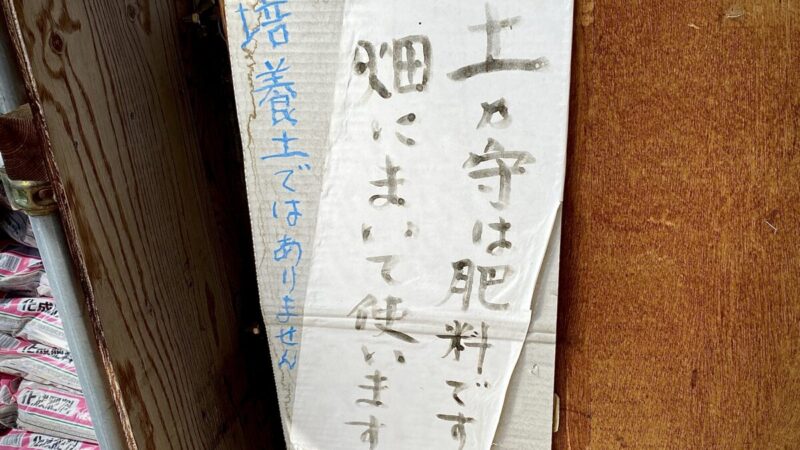 土の守は肥料です
畑にまいて使います
培養土ではありません
化成肥料
化成肥料
化成